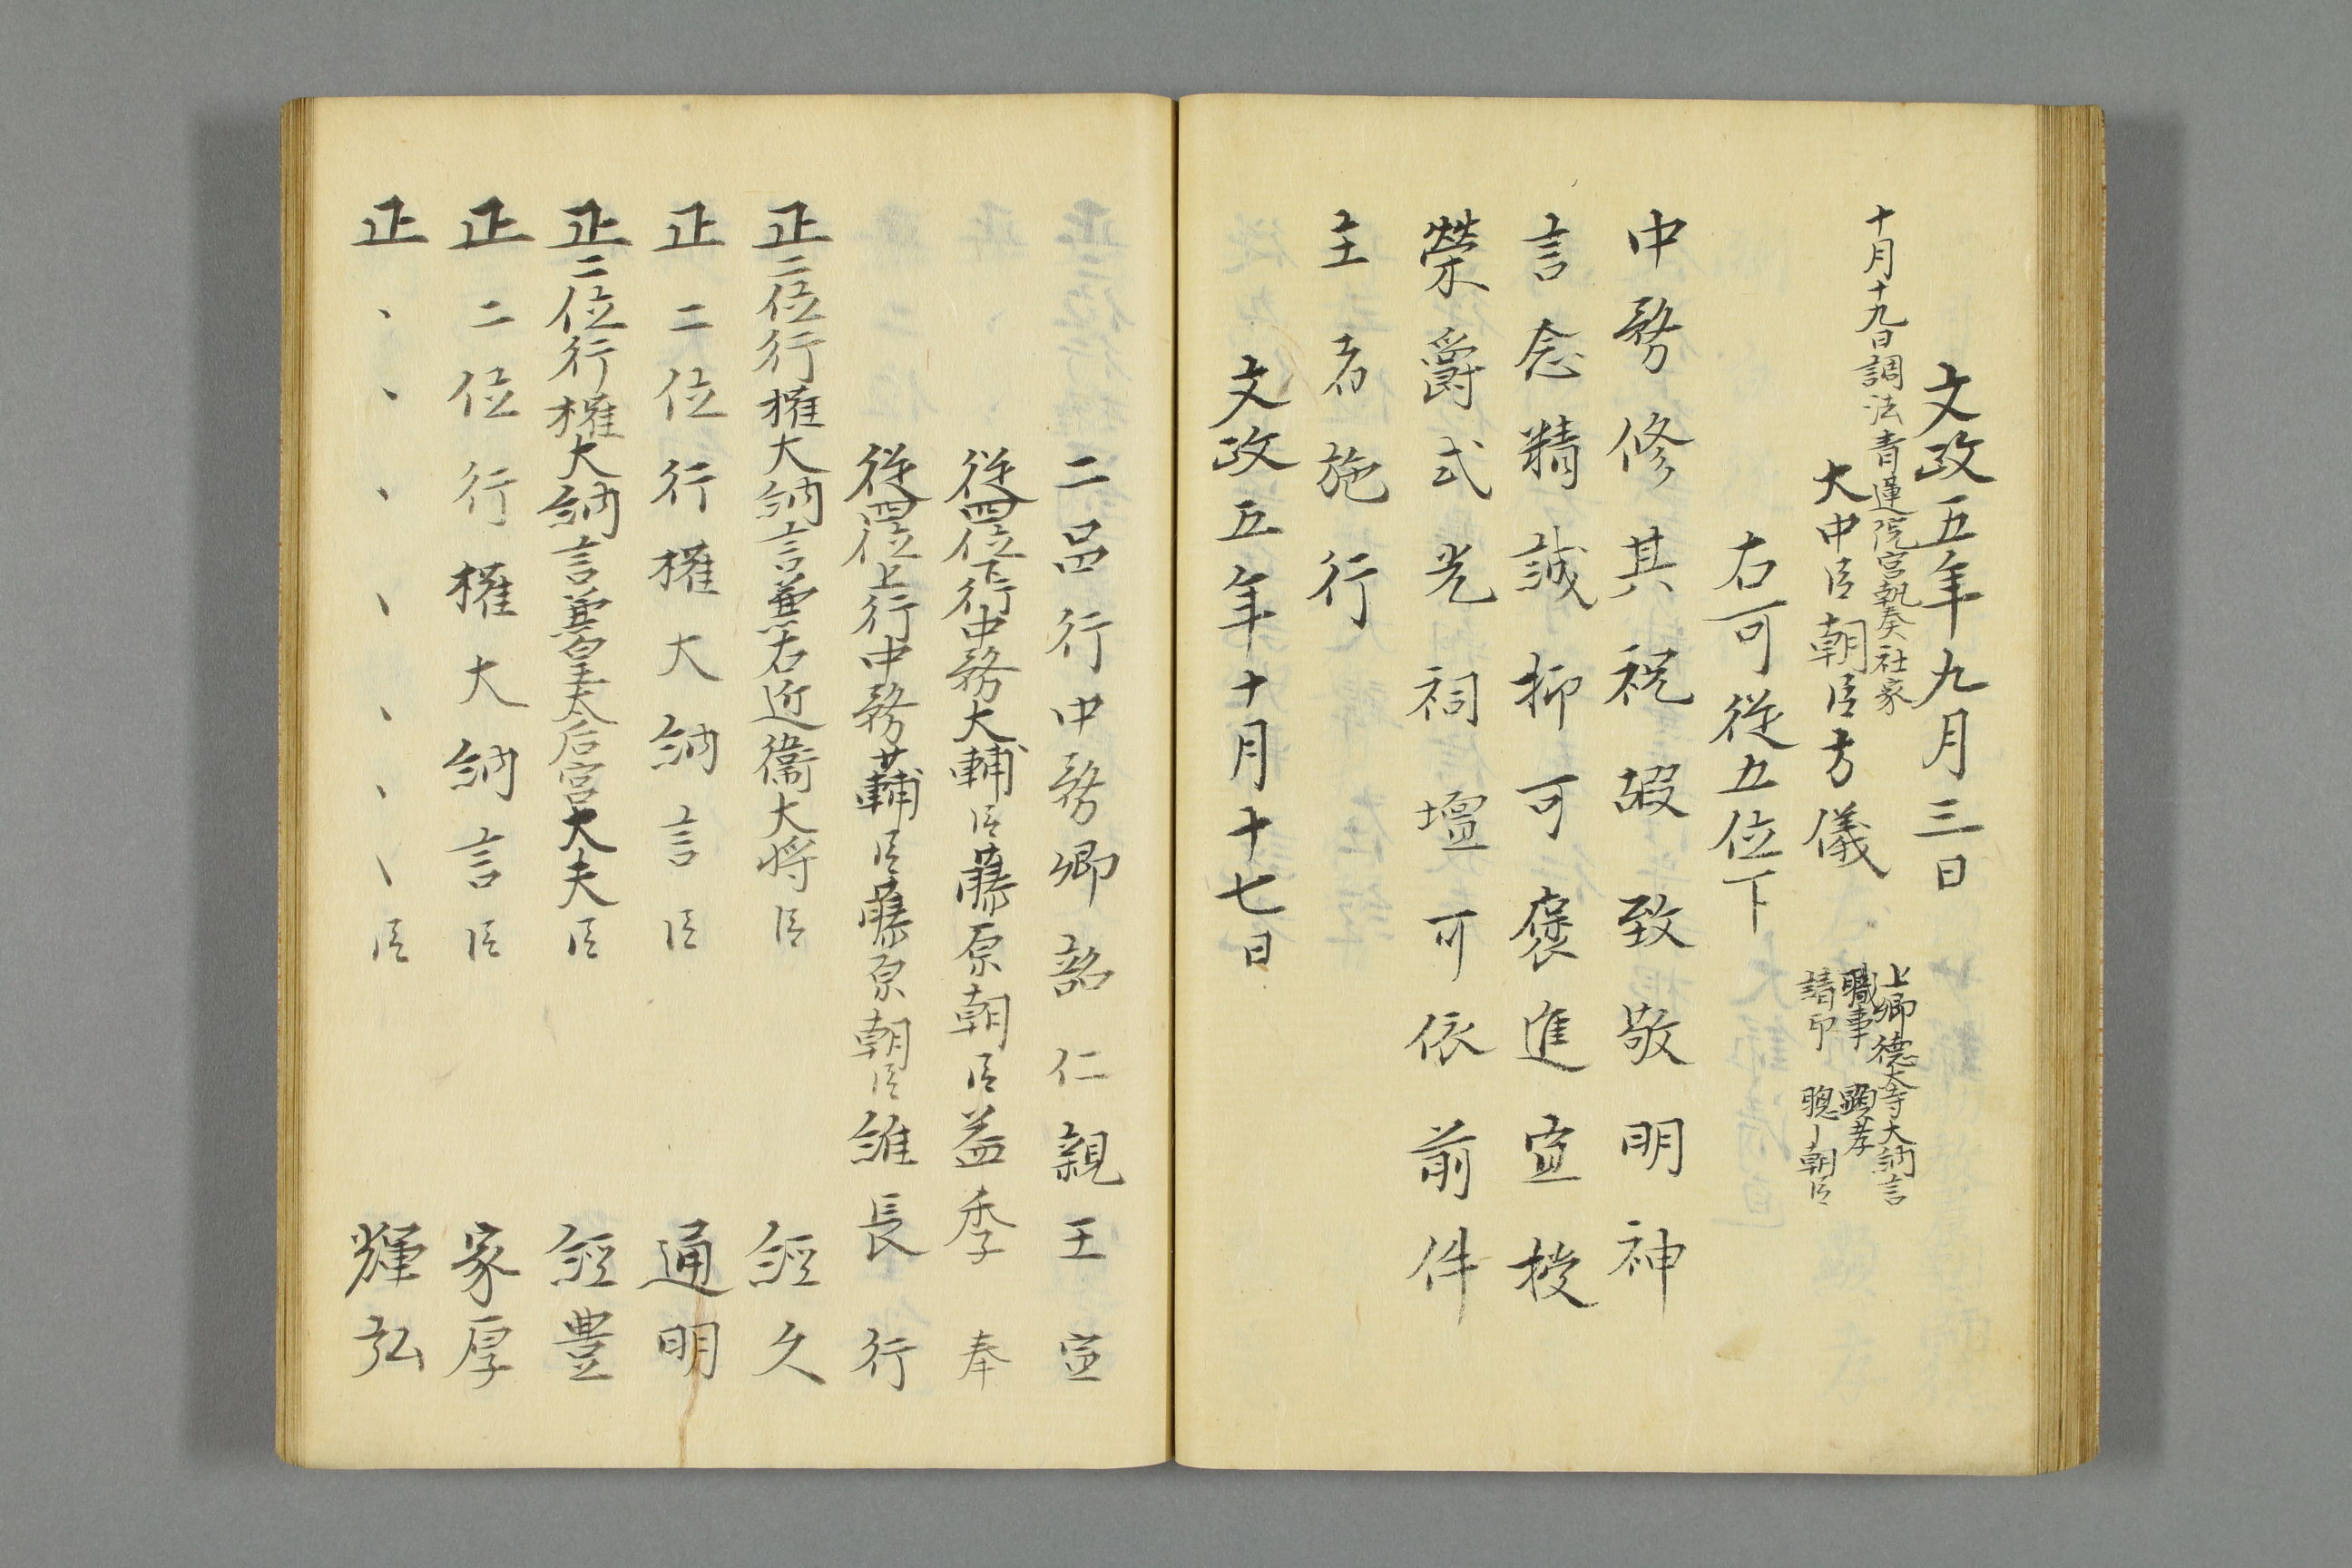 文政五年九月三日
十月十九日調法青蓮院宮執奏社家
大中臣朝臣方儀
上卿徳大寺大納言
職事 顕孝
請印 聰丨朝臣
右可従五位下
中務修其祝嘏致敬明神
言念精誠抑可褒進宣授
榮爵式光祠壇可依前件
主者施行
文政五年十月十七日
二品行中務卿韶仁親王宣
従四位下行中務大輔臣藤原朝臣益季奉
従四位上行中務少輔臣藤原朝臣維長行
正二位行権大納言兼右近衛大将臣 經久
正二位行権大納言臣 通明
正二位行権大納言兼皇太后宮大夫臣 經豊
正二位行権大納言臣 家厚
正、、、、、、、臣 輝弘